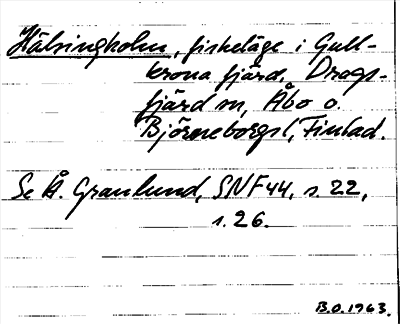 Hälsingholm, fiskeläge i Gull-
krona fjärd, Drags-
fjärd sn, Åbo o.
Björneborgs l, Finland.
Se Å. Granlund, SNF 44, s. 22,
s. 26.
B.O. 1963.